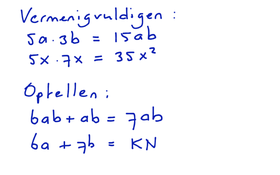 Vermenigvuldigen :
5a · 3b = 15ab
5x · 7x = 35x²
Optellen :
6ab + ab = 7ab
6a + 7b = KN